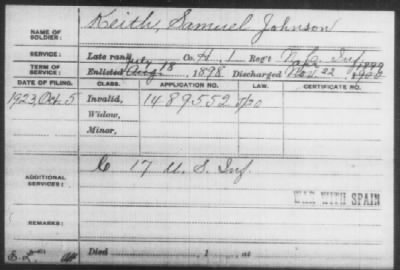 NAME OF SOLDIER: Keith, Samuel Johnson
SERVICE: Late rank Co. H, 1 Reg't Inf
TERM OF SERVICE: Enlisted Aug 18 1898 Discharged Nov. 22 1899
DATE OF FILING. CLASS. APPLICATION NO. LAW. CERTIFICATE NO.
1923, Oct. 5 Invalid, 1489552
Widow,
Minor,
ADDITIONAL SERVICES: C 17 U. S. Inf
WAR WITH SPAIN
REMARKS:
Died , 1 at